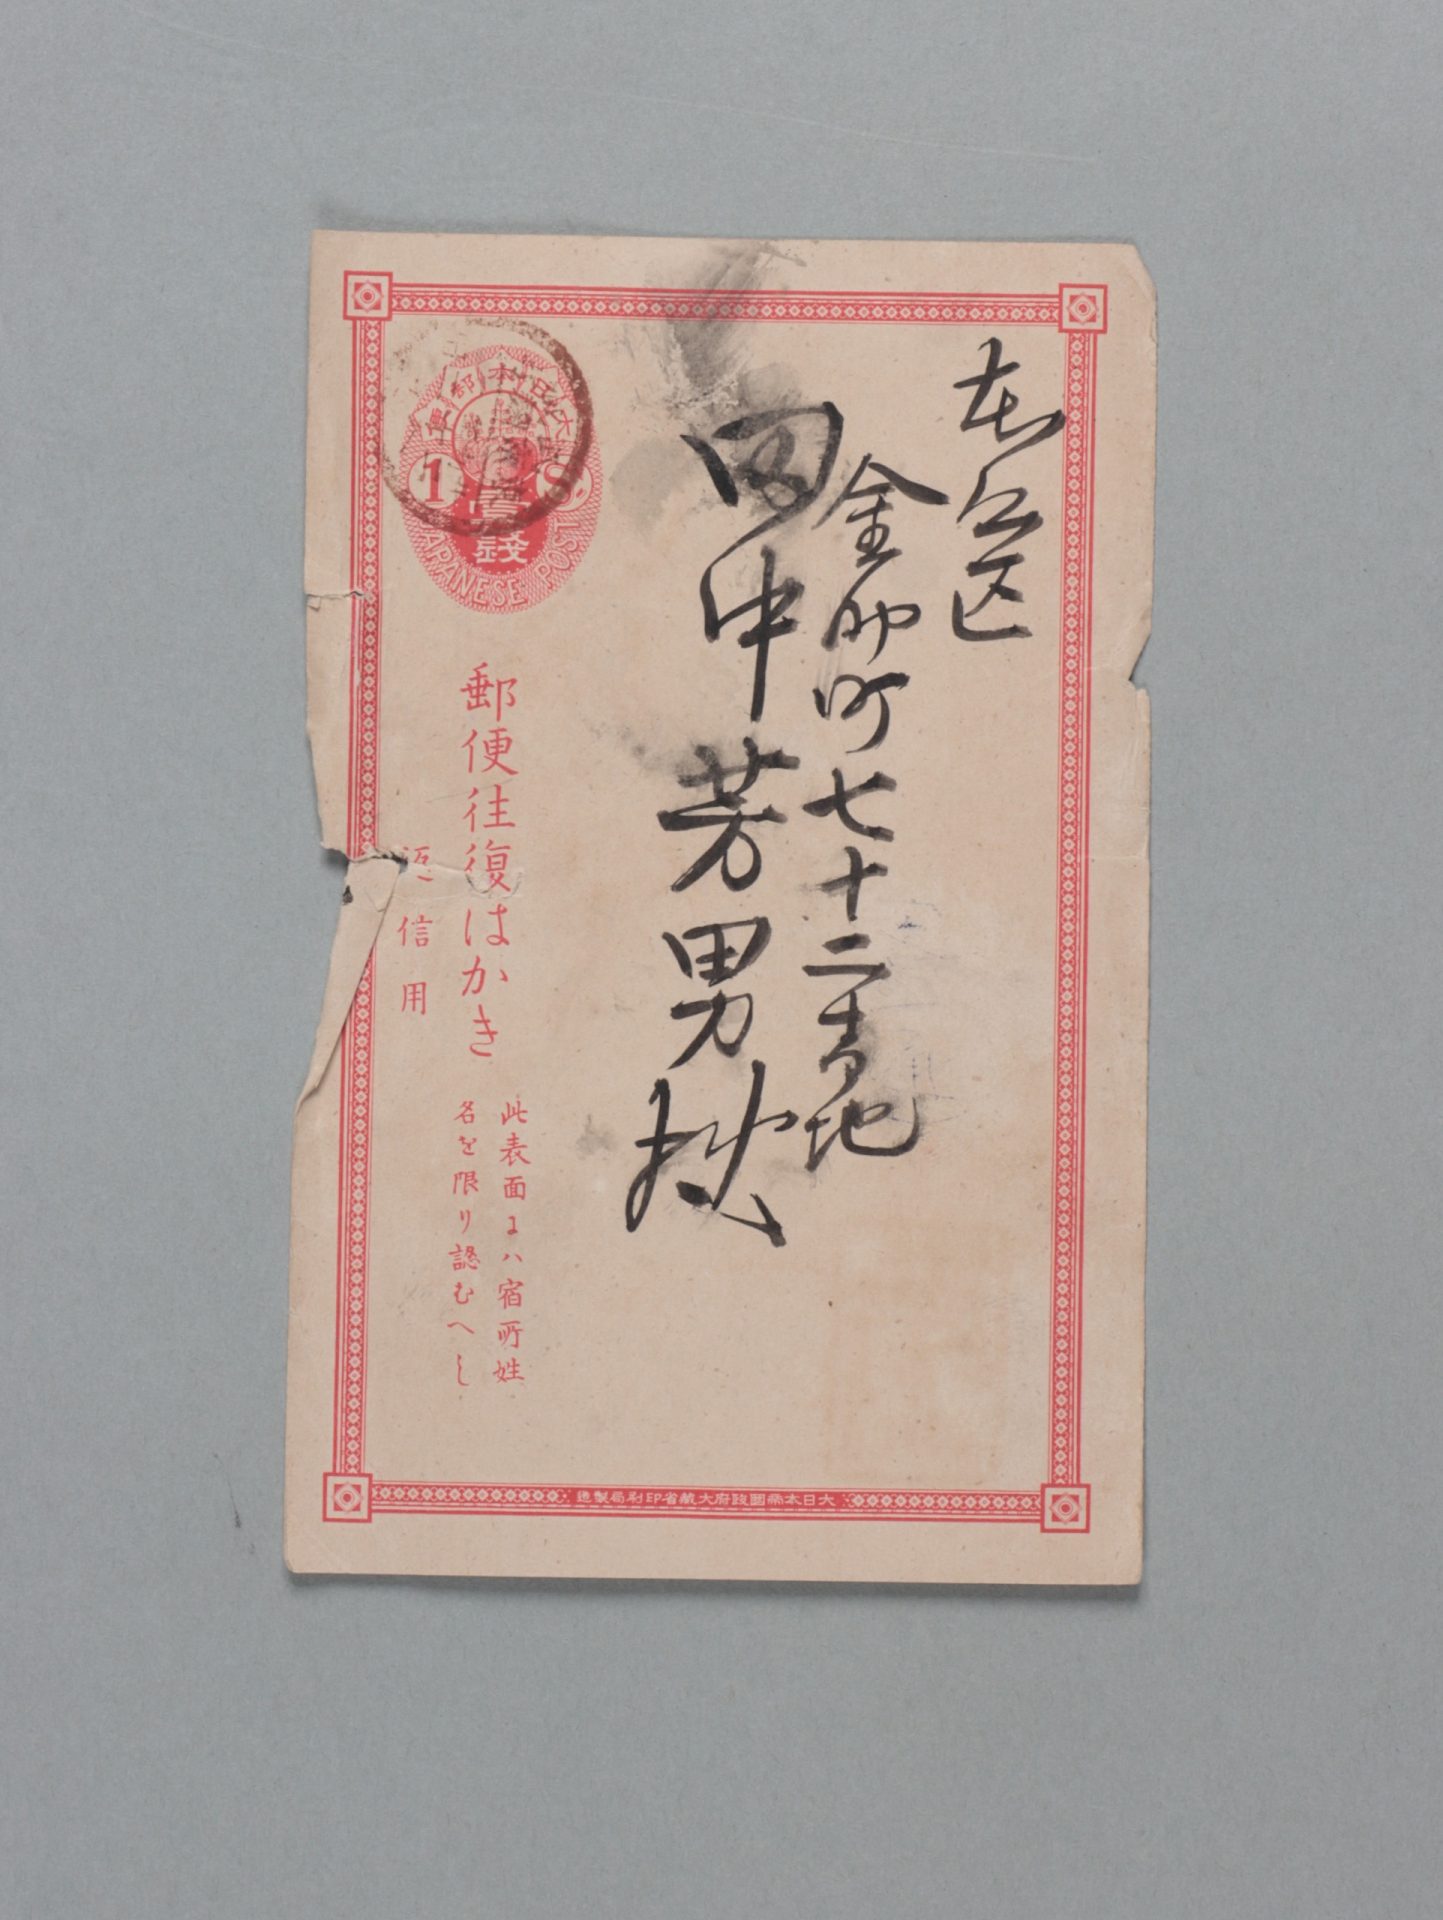 本郷区
金助町七十二番地
田中芳男様
大日本郵便
1 S
壹錢
JAPANESE POST
郵便往復はかき
返信用
此表面にハ宿所姓
名を限り認むへし
大日本帝國政府大藏省印刷局製造